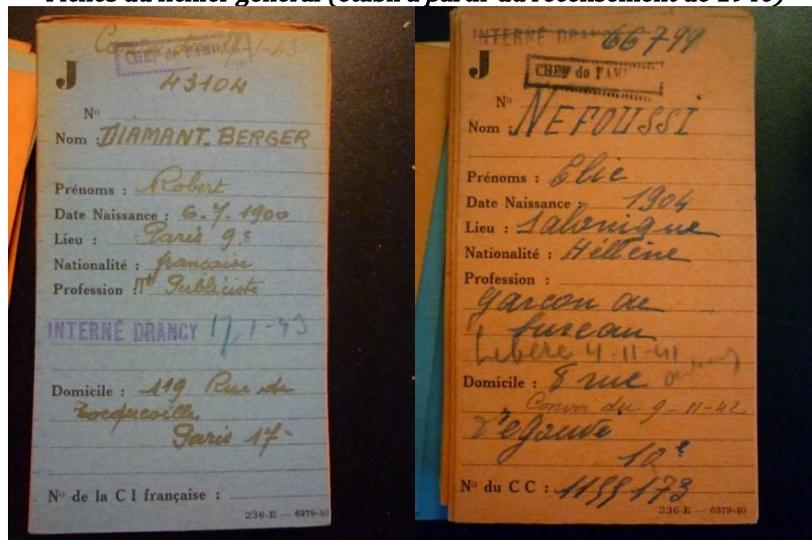 Fiches du fichier général (établi à partir du recensement de 1940)
1-43
CHEF de FAMILLE
J
43104
Nº
Nom : DIAMANT. BERGER
Prénoms : Robert
Date Naissance : 6. 7. 1900
Lieu : Paris 9e
Nationalité : française
Profession : Publiciste
INTERNÉ DRANCY 17.1-43
Domicile : 119 Rue de
Tocqueville
Paris 17-
Nº de la C I française :
236-E — 6379-40
INTERNÉ DRANCY 66799
J
CHEF de FAM
Nº
Nom NEFOUSSI
Prénoms : Elie
Date Naissance : 1904
Lieu : Salonique
Nationalité : Héllène
Profession :
garcon de
bureau
Libéré 4-11-41
Domicile : 8 rue
Convoi du 9-11-42
10e
Nº du CC : 1155173
236-E — 6379-40